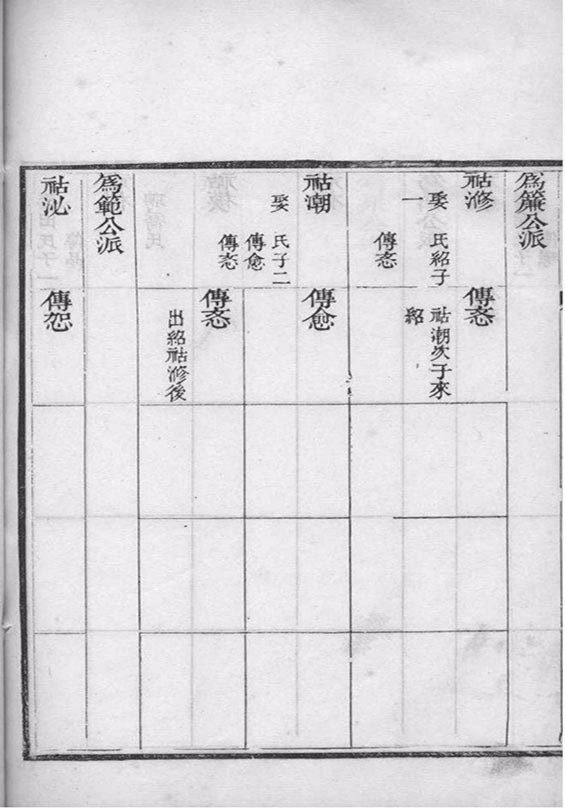 爲簾公派
祜滫
娶　氏紹子
一
傳忞
傳忞
祜潮次子來
紹
祜潮
娶　氏子二
傳愈
傳忞
傳愈
傳忞
出紹祜滫後
爲範公派
祜泌
傳恕